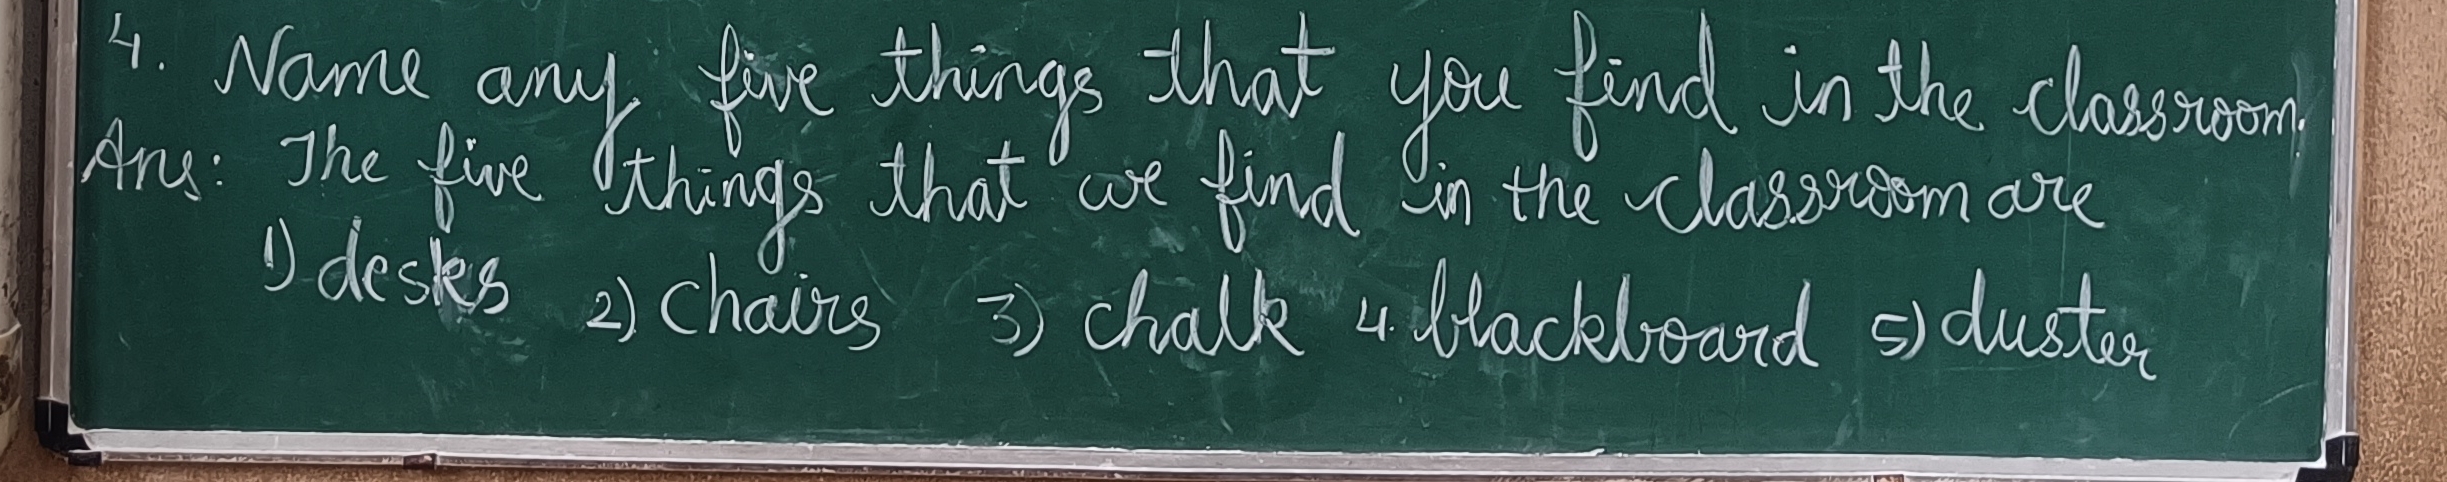 4. Name any five things that you find in the classroom.
Ans: The five things that we find in the classroom are
1) desks 2) Chairs 3) chalk 4. blackboard 5) duster